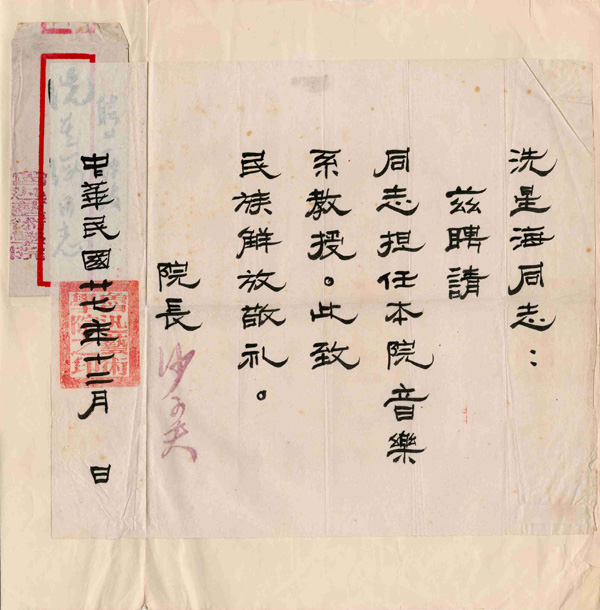 洗星海同志：
茲聘請
同志担任本院音樂
系教授。此致
民族解放敬礼。
院長 沙可夫
中華民國廿七年十二月 日